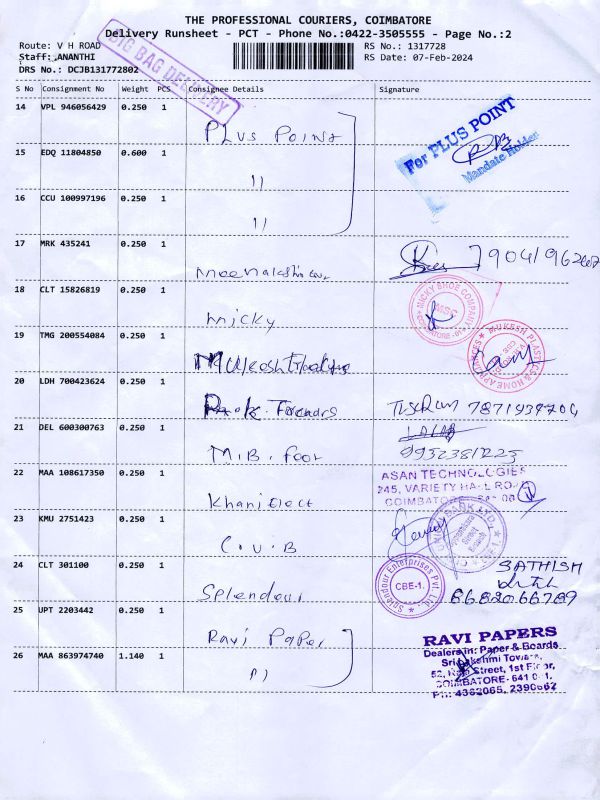 THE PROFESSIONAL COURIERS, COIMBATORE
Delivery Runsheet - PCT - Phone No.:0422-3505555 - Page No.:2
Route: V H ROAD
RS No.: 1317728
Staff: ANANTHI
RS Date: 07-Feb-2024
DRS No.: DCJB131772802
BIG BAG DELIVERY
S No Consignment No Weight PCS Consignee Details Signature
14 VPL 946056429 0.250 1
PLUS POINT
For PLUS POINT
Mandate Holder
15 EDQ 11804850 0.600 1
"
16 CCU 100997196 0.250 1
"
17 MRK 435241 0.250 1
18 CLT 15826819 0.250 1
micky
MICKY SHOE COMPANY
19 TMG 200554084 0.250 1
MUKESH PLASTICS & HOME APPLIANCES
20 LDH 700423624 0.250 1
21 DEL 600300763 0.250 1
M.B. Foot
22 MAA 108617350 0.250 1
Khaniolect
ASAN TECHNOLOGIES
245, VARIETY HALL ROAD
COIMBATORE
23 KMU 2751423 0.250 1
C.U.B
24 CLT 301100 0.250 1
Splendour
Splendour Enterprises Pvt. Ltd.
CBE-1.
SATHISH
25 UPT 2203442 0.250 1
Ravi Paper
RAVI PAPERS
Dealers in: Paper & Boards
Sri Lakshmi Towers,
Street, 1st Floor,
COIMBATORE - 641 001.
PH: 4362065, 2390662
26 MAA 863974740 1.140 1
"